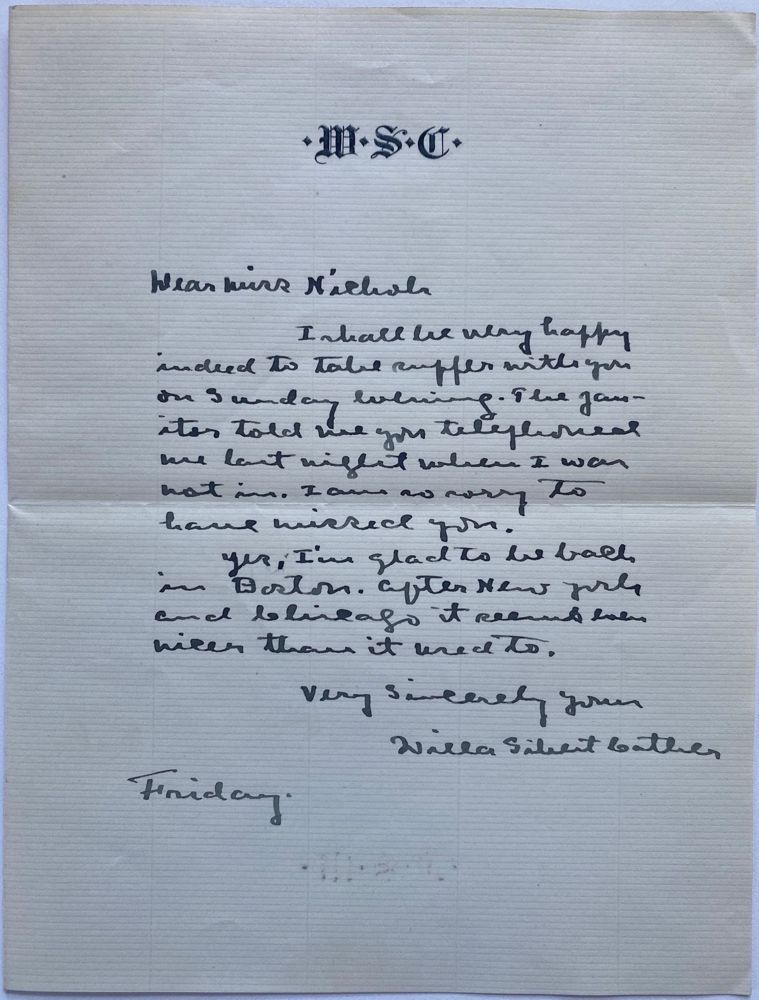 ·W·S·C·
Dear Miss Nichols
I shall be very happy
indeed to take supper with you
on Sunday evening. The jan-
itor told me you telephoned
me last night when I was
not in. I am so sorry to
have missed you.
Yes, I'm glad to be back
in Boston. After New York
and Chicago it seems even
nicer than it used to.
Very Sincerely yours
Willa Sibert Cather
Friday.